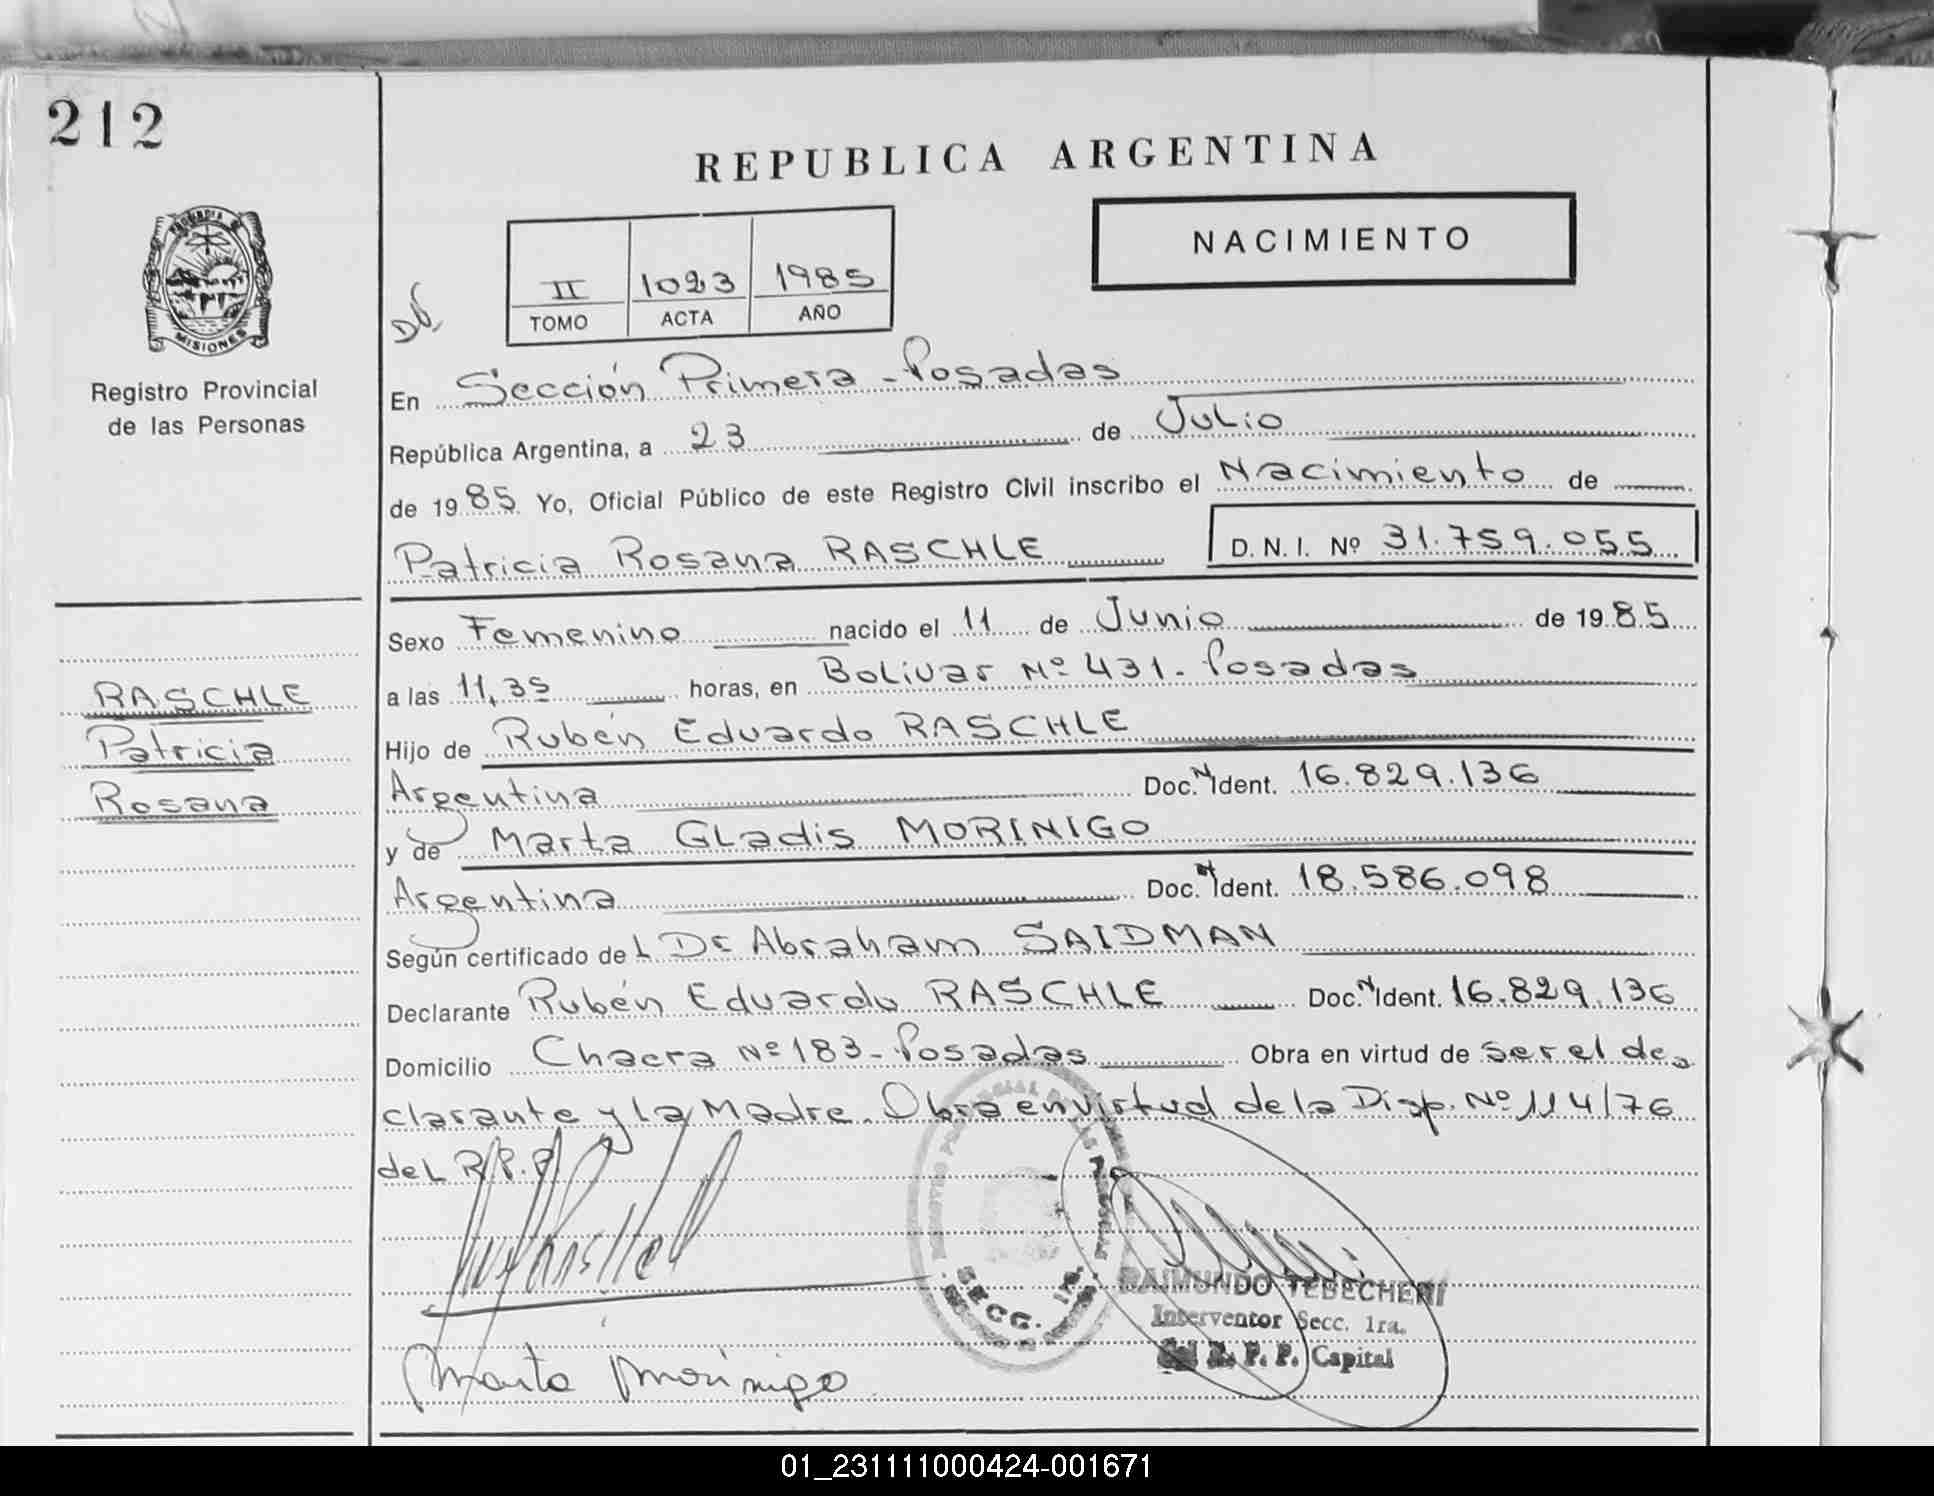 212
REPUBLICA ARGENTINA
NACIMIENTO
II 1023 1985
TOMO ACTA AÑO
MISIONES
Registro Provincial
de las Personas
En Sección Primera - Posadas
República Argentina, a 23 de Julio
de 1985 Yo, Oficial Público de este Registro Civil inscribo el Nacimiento de
Patricia Rosana RASCHLE D. N. I. Nº 31.759.055
Sexo Femenino nacido el 11 de Junio de 1985
a las 11,35 horas, en Bolivar Nº 431 - Posadas
Hijo de Rubén Eduardo RASCHLE
Argentina Doc. N Ident. 16.829.136
y de Marta Gladis MORINIGO
Argentina Doc. N Ident. 18.586.098
Según certificado del Dr Abraham SAIDMAN
Declarante Rubén Eduardo RASCHLE Doc. N Ident. 16.829.136
Domicilio Chacra Nº 183 - Posadas Obra en virtud de ser el de-
clarante y la Madre. Obra en virtud de la Disp. Nº 114/76
del R.P.P.
RASCHLE
Patricia
Rosana
SECC. 1ra.
RAIMUNDO TEBECHERI
Interventor Secc. 1ra.
del R. P. P. Capital
Marta Morinigo
01_231111000424-001671